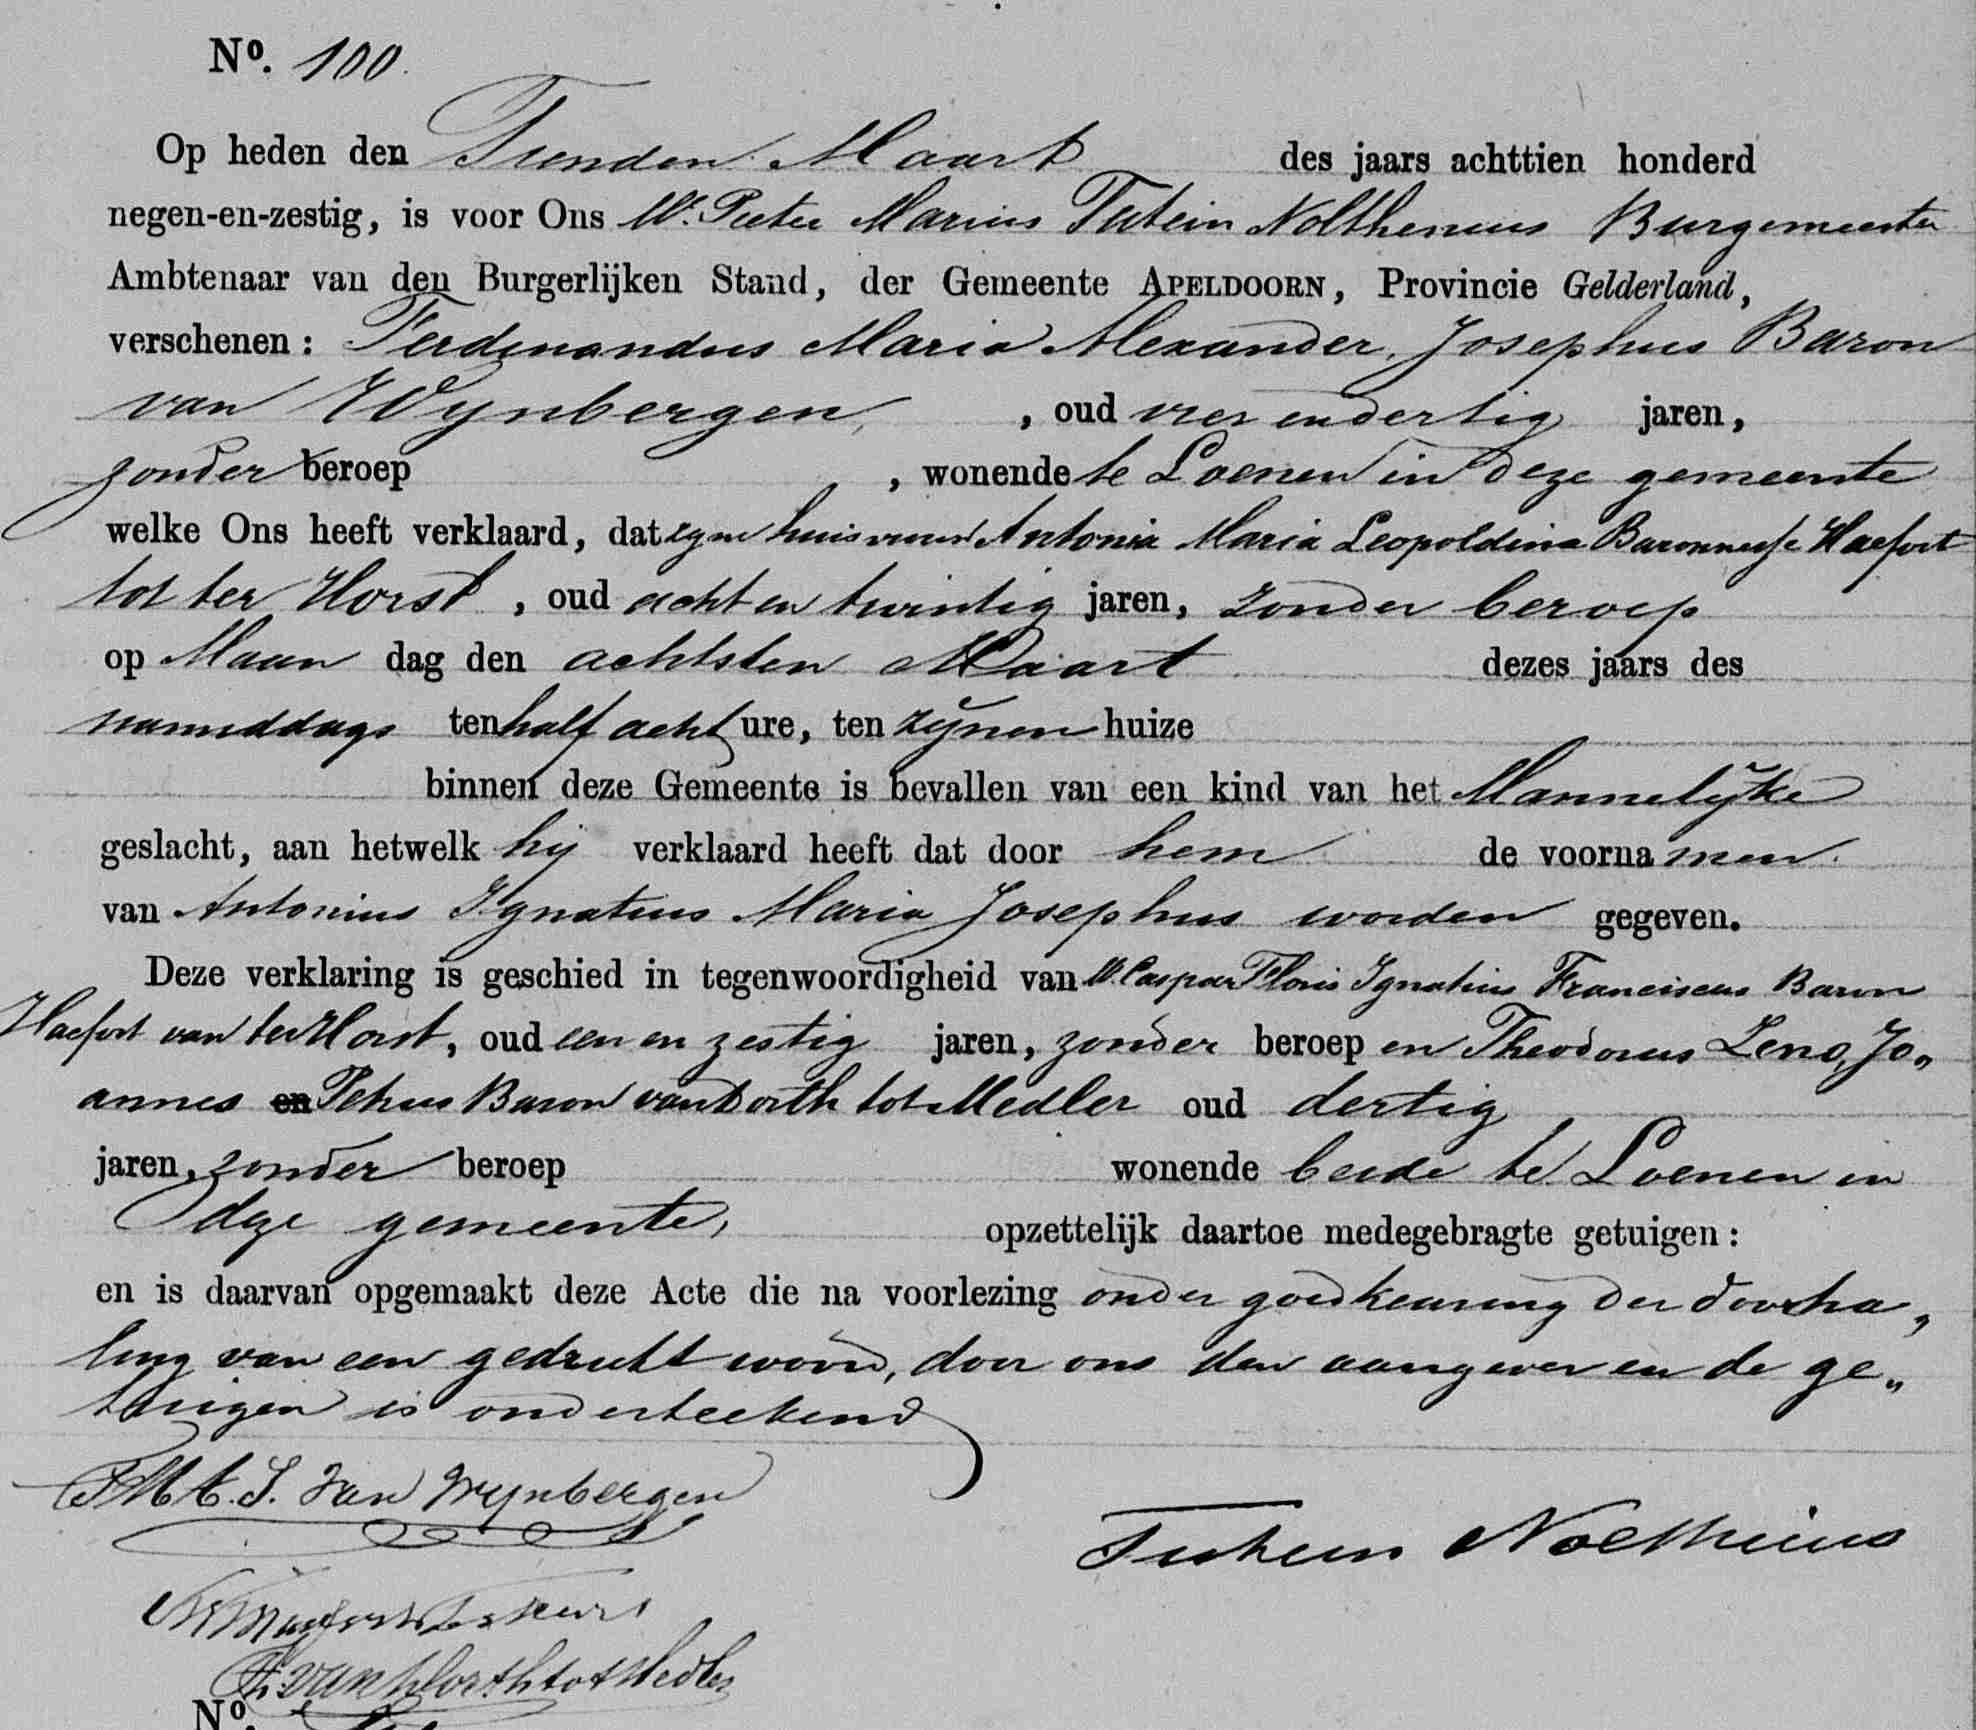 No. 100.
Op heden den Tienden Maart des jaars achttien honderd
negen-en-zestig, is voor Ons Mr. Pieter Marius Tutein Nolthenius Burgemeester
Ambtenaar van den Burgerlijken Stand, der Gemeente APELDOORN, Provincie Gelderland,
verschenen: Ferdinandus Maria Alexander Josephus Baron
van Wynbergen, , oud vier en dertig jaren,
zonder beroep , wonende te Loenen in deze gemeente
welke Ons heeft verklaard, dat zyne huisvrouw Antonia Maria Leopoldina Baronnesse Haefort
tot ter Horst , oud acht en twintig jaren, zonder beroep
op Maan dag den achtsten Maart dezes jaars des
namiddags ten half acht ure, ten zijnen huize
binnen deze Gemeente is bevallen van een kind van het Mannelijke
geslacht, aan hetwelk hij verklaard heeft dat door hem de voorna men
van Antonius Ignatius Maria Josephus worden gegeven.
Deze verklaring is geschied in tegenwoordigheid van Mr. Caspar Floris Ignatius Franciscus Baron
Haefort van ter Horst, oud een en zestig jaren, zonder beroep en Theodorus Zeno Jo„
annes en Petrus Baron van Dorth tot Medler oud dertig
jaren, zonder beroep wonende beide te Loenen in
deze gemeente, opzettelijk daartoe medegebragte getuigen:
en is daarvan opgemaakt deze Acte die na voorlezing onder goedkeuring der doorha„
ling van een gedrukt woord, door ons den aangever en de ge„
tuigen is onderteekend
F M A. J. van Wynbergen
Tutein Nolthenius
Th. van Dorth tot Medler
No.